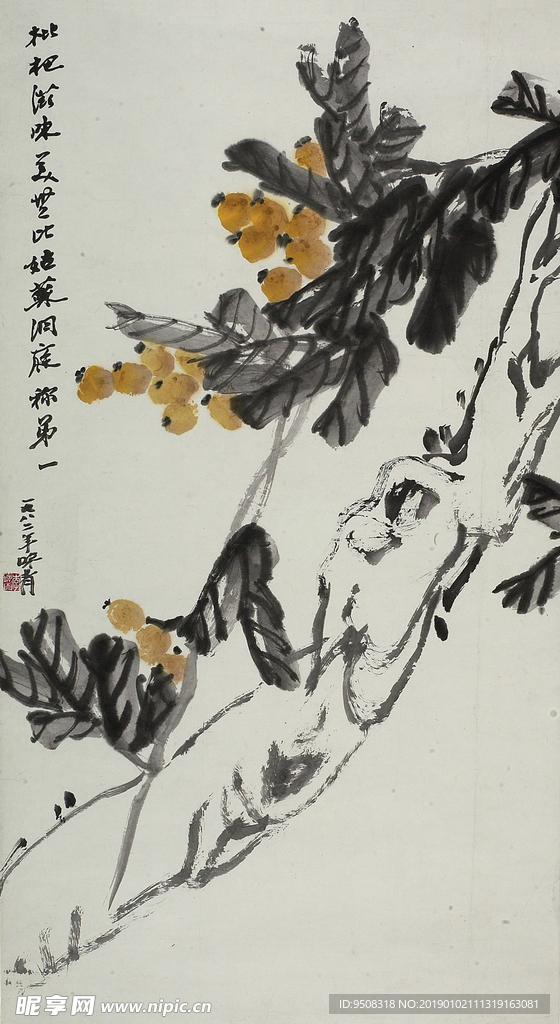 枇杷滋味美世比姑蘇洞庭称第一
一九八二年
昵享网 www.nipic.cn
ID:9508318 NO:20190102111319163081